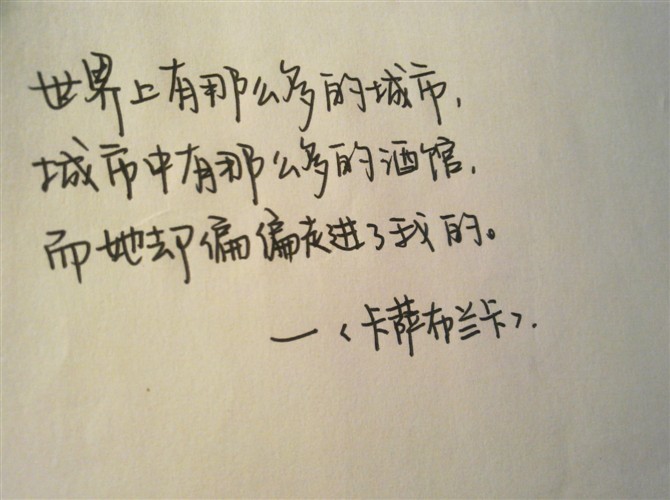 世界上有那么多的城市,
城市中有那么多的酒馆,
而她却偏偏走进了我的。
—〈卡萨布兰卡〉.